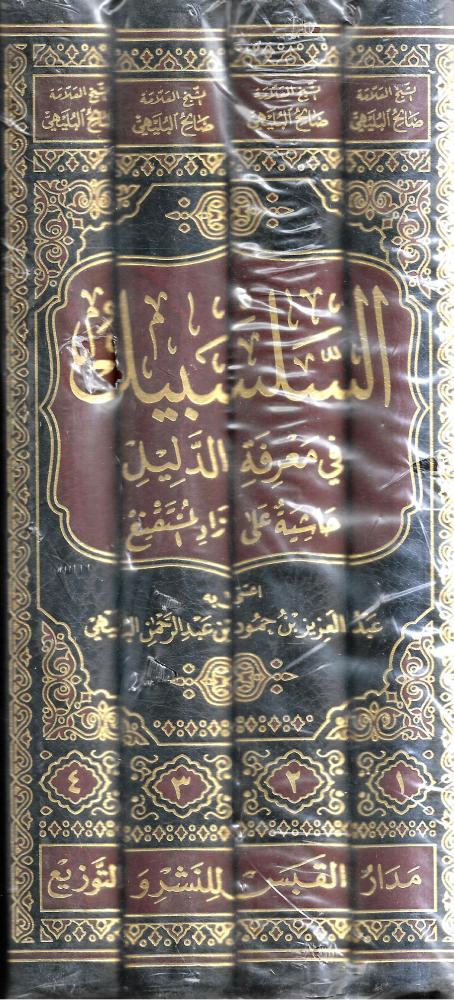 الشيخ العلامة
صالح البليهي
الشيخ العلامة
صالح البليهي
الشيخ العلامة
صالح البليهي
الشيخ العلامة
صالح البليهي
السلسبيل
في معرفة الدليل
حاشية على زاد المستقنع
اعتنى به
عبد العزيز بن حمود بن عبد الرحمن البليهي
١ ٢ ٣ ٤
مدار القبس للنشر و التوزيع